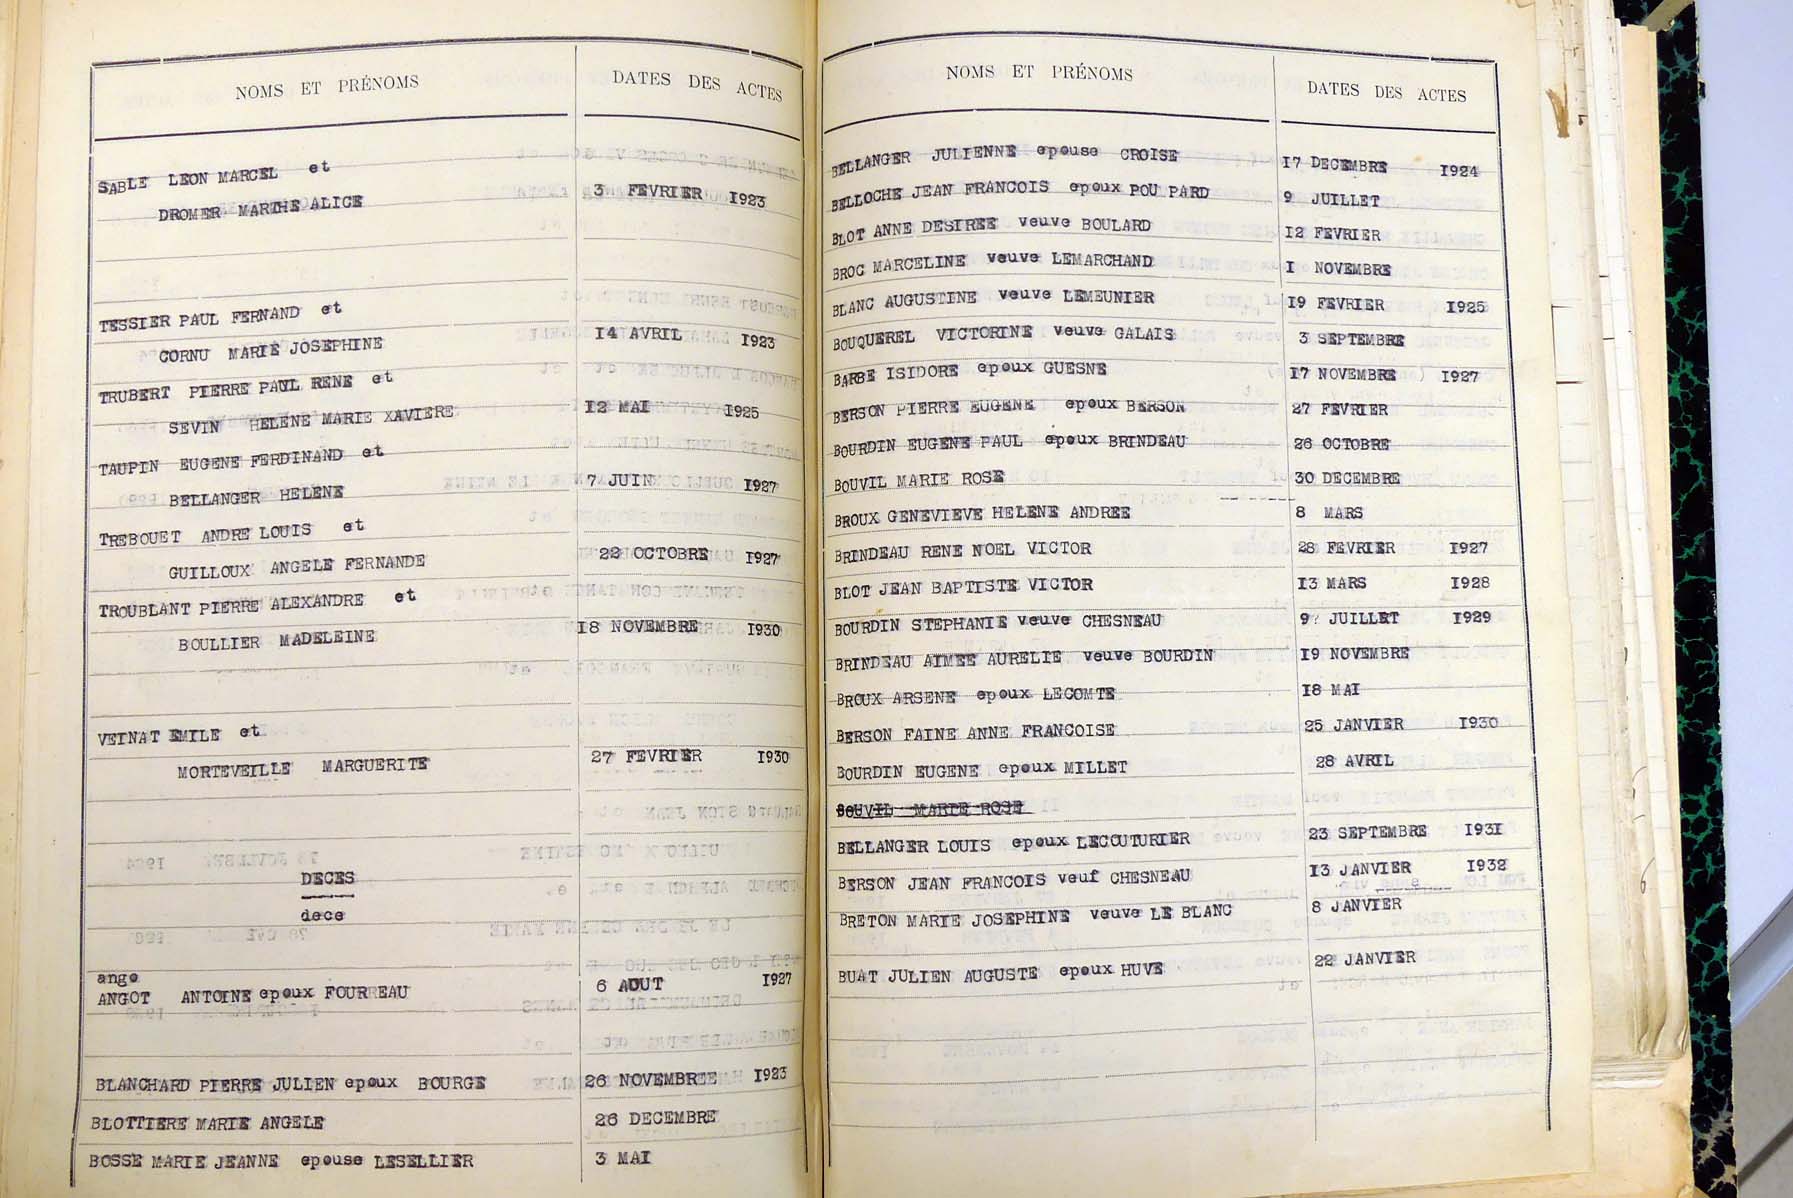 NOMS ET PRÉNOMS DATES DES ACTES
SABLE LEON MARCEL et
DROMER MARTHE ALICE 3 FEVRIER 1923
TESSIER PAUL FERNAND et
CORNU MARIE JOSEPHINE 14 AVRIL 1923
TRUBERT PIERRE PAUL RENE et
SEVIN HELENE MARIE XAVIERE 12 MAI 1925
TAUPIN EUGENE FERDINAND et
BELLANGER HELENE 7 JUIN 1927
TREBOUET ANDRE LOUIS et
GUILLOUX ANGELE FERNANDE 22 OCTOBRE 1927
TROUBLANT PIERRE ALEXANDRE et
BOULLIER MADELEINE 18 NOVEMBRE 1930
VEINAT EMILE et
MORTEVEILLE MARGUERITE 27 FEVRIER 1930
DECES
dece
ango
ANGOT ANTOINE epoux FOURREAU 6 AOUT 1927
BLANCHARD PIERRE JULIEN epoux BOURGE 26 NOVEMBREE 1923
BLOTTIERE MARIE ANGELE 26 DECEMBRE
BOSSE MARIE JEANNE epouse LESELLIER 3 MAI
NOMS ET PRÉNOMS DATES DES ACTES
BELLANGER JULIENNE epouse CROISE 17 DECEMBRE 1924
BELLOCHE JEAN FRANCOIS epoux POU PARD 9 JUILLET
BLOT ANNE DESIREE veuve BOULARD 12 FEVRIER
BROC MARCELINE veuve LEMARCHAND 1 NOVEMBRE
BLANC AUGUSTINE veuve LEMEUNIER 19 FEVRIER 1925
BOUQUEREL VICTORINE veuve GALAIS 3 SEPTEMBRE
BARBE ISIDORE epoux GUESNE 17 NOVEMBRE 1927
BERSON PIERRE EUGENE epoux BERSON 27 FEVRIER
BOURDIN EUGENE PAUL epoux BRINDEAU 26 OCTOBRE
BOUVIL MARIE ROSE 30 DECEMBRE
BROUX GENEVIEVE HELENE ANDREE 8 MARS
BRINDEAU RENE NOEL VICTOR 28 FEVRIER 1927
BLOT JEAN BAPTISTE VICTOR 13 MARS 1928
BOURDIN STEPHANIE veuve CHESNEAU 9? JUILLET 1929
BRINDEAU AIMEE AURELIE veuve BOURDIN 19 NOVEMBRE
BROUX ARSENE epoux LECOMTE 18 MAI
BERSON FAINE ANNE FRANCOISE 25 JANVIER 1930
BOURDIN EUGENE epoux MILLET 28 AVRIL
BOUVIL MARIE ROSE
BELLANGER LOUIS epoux LECOUTURIER 23 SEPTEMBRE 1931
BERSON JEAN FRANCOIS veuf CHESNEAU 13 JANVIER 1932
BRETON MARIE JOSEPHINE veuve LE BLANC 8 JANVIER
BUAT JULIEN AUGUSTE epoux HUVE 22 JANVIER